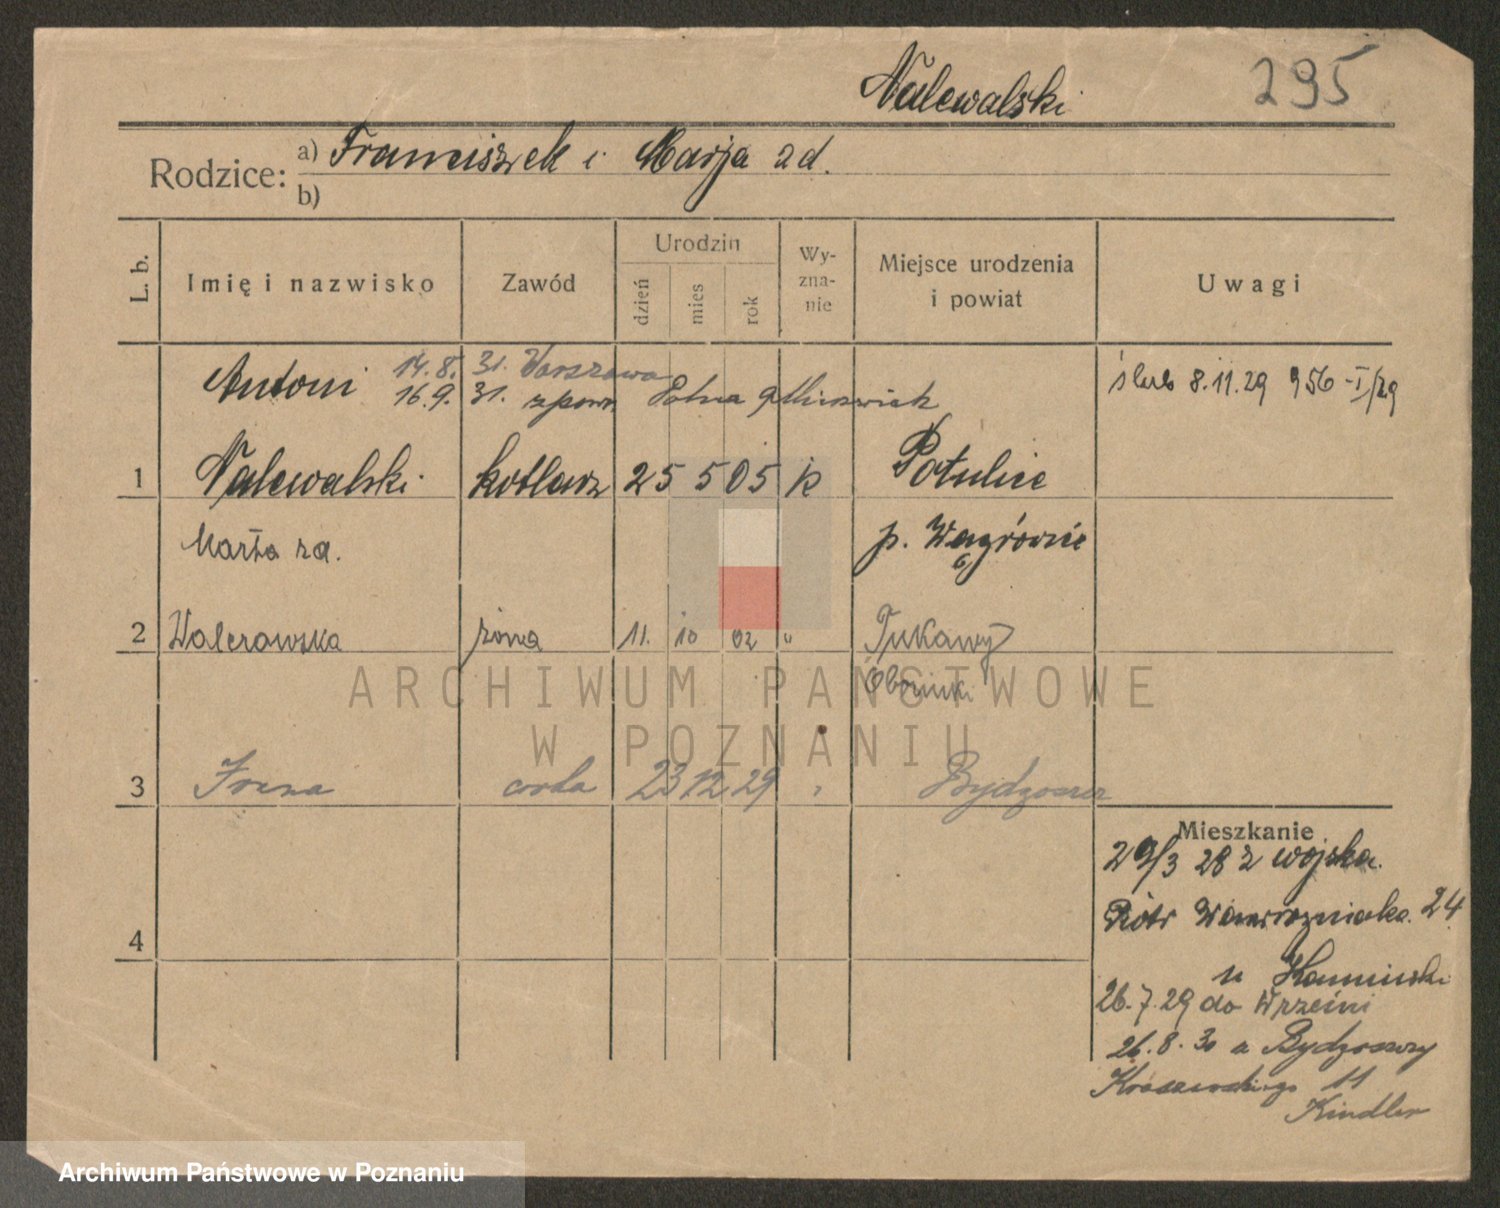 Nalewalski 295
Rodzice: a) Franciszek i Marja zd.
b)
L. b. Imię i nazwisko Zawód Urodzin dzień mies rok Wy-zna-nie Miejsce urodzenia i powiat Uwagi
Antoni 14.8. 31. Warszawa ślub 8.11.29 956-I/29
16.9. 31. z pow. Polna 9
1 Nalewalski kotlarz 25 5 05 k Potulice
Marta zd. p. Wągrówiec
2 Walerowska żona 11. 10 02 " Tukawy
Oborniki
3 Irena corka 23 12 29 " Bydgoszcz
Mieszkanie
29/3 28 z wojska.
Piotr Wawrzyniaka. 24
4
u Kaminski
26.7.29 do Wrześni
26.8.30 z Bydgoszczy
Kraszewskiego 11
Kindler
ARCHIWUM PAŃSTWOWE
W POZNANIU
Archiwum Państwowe w Poznaniu